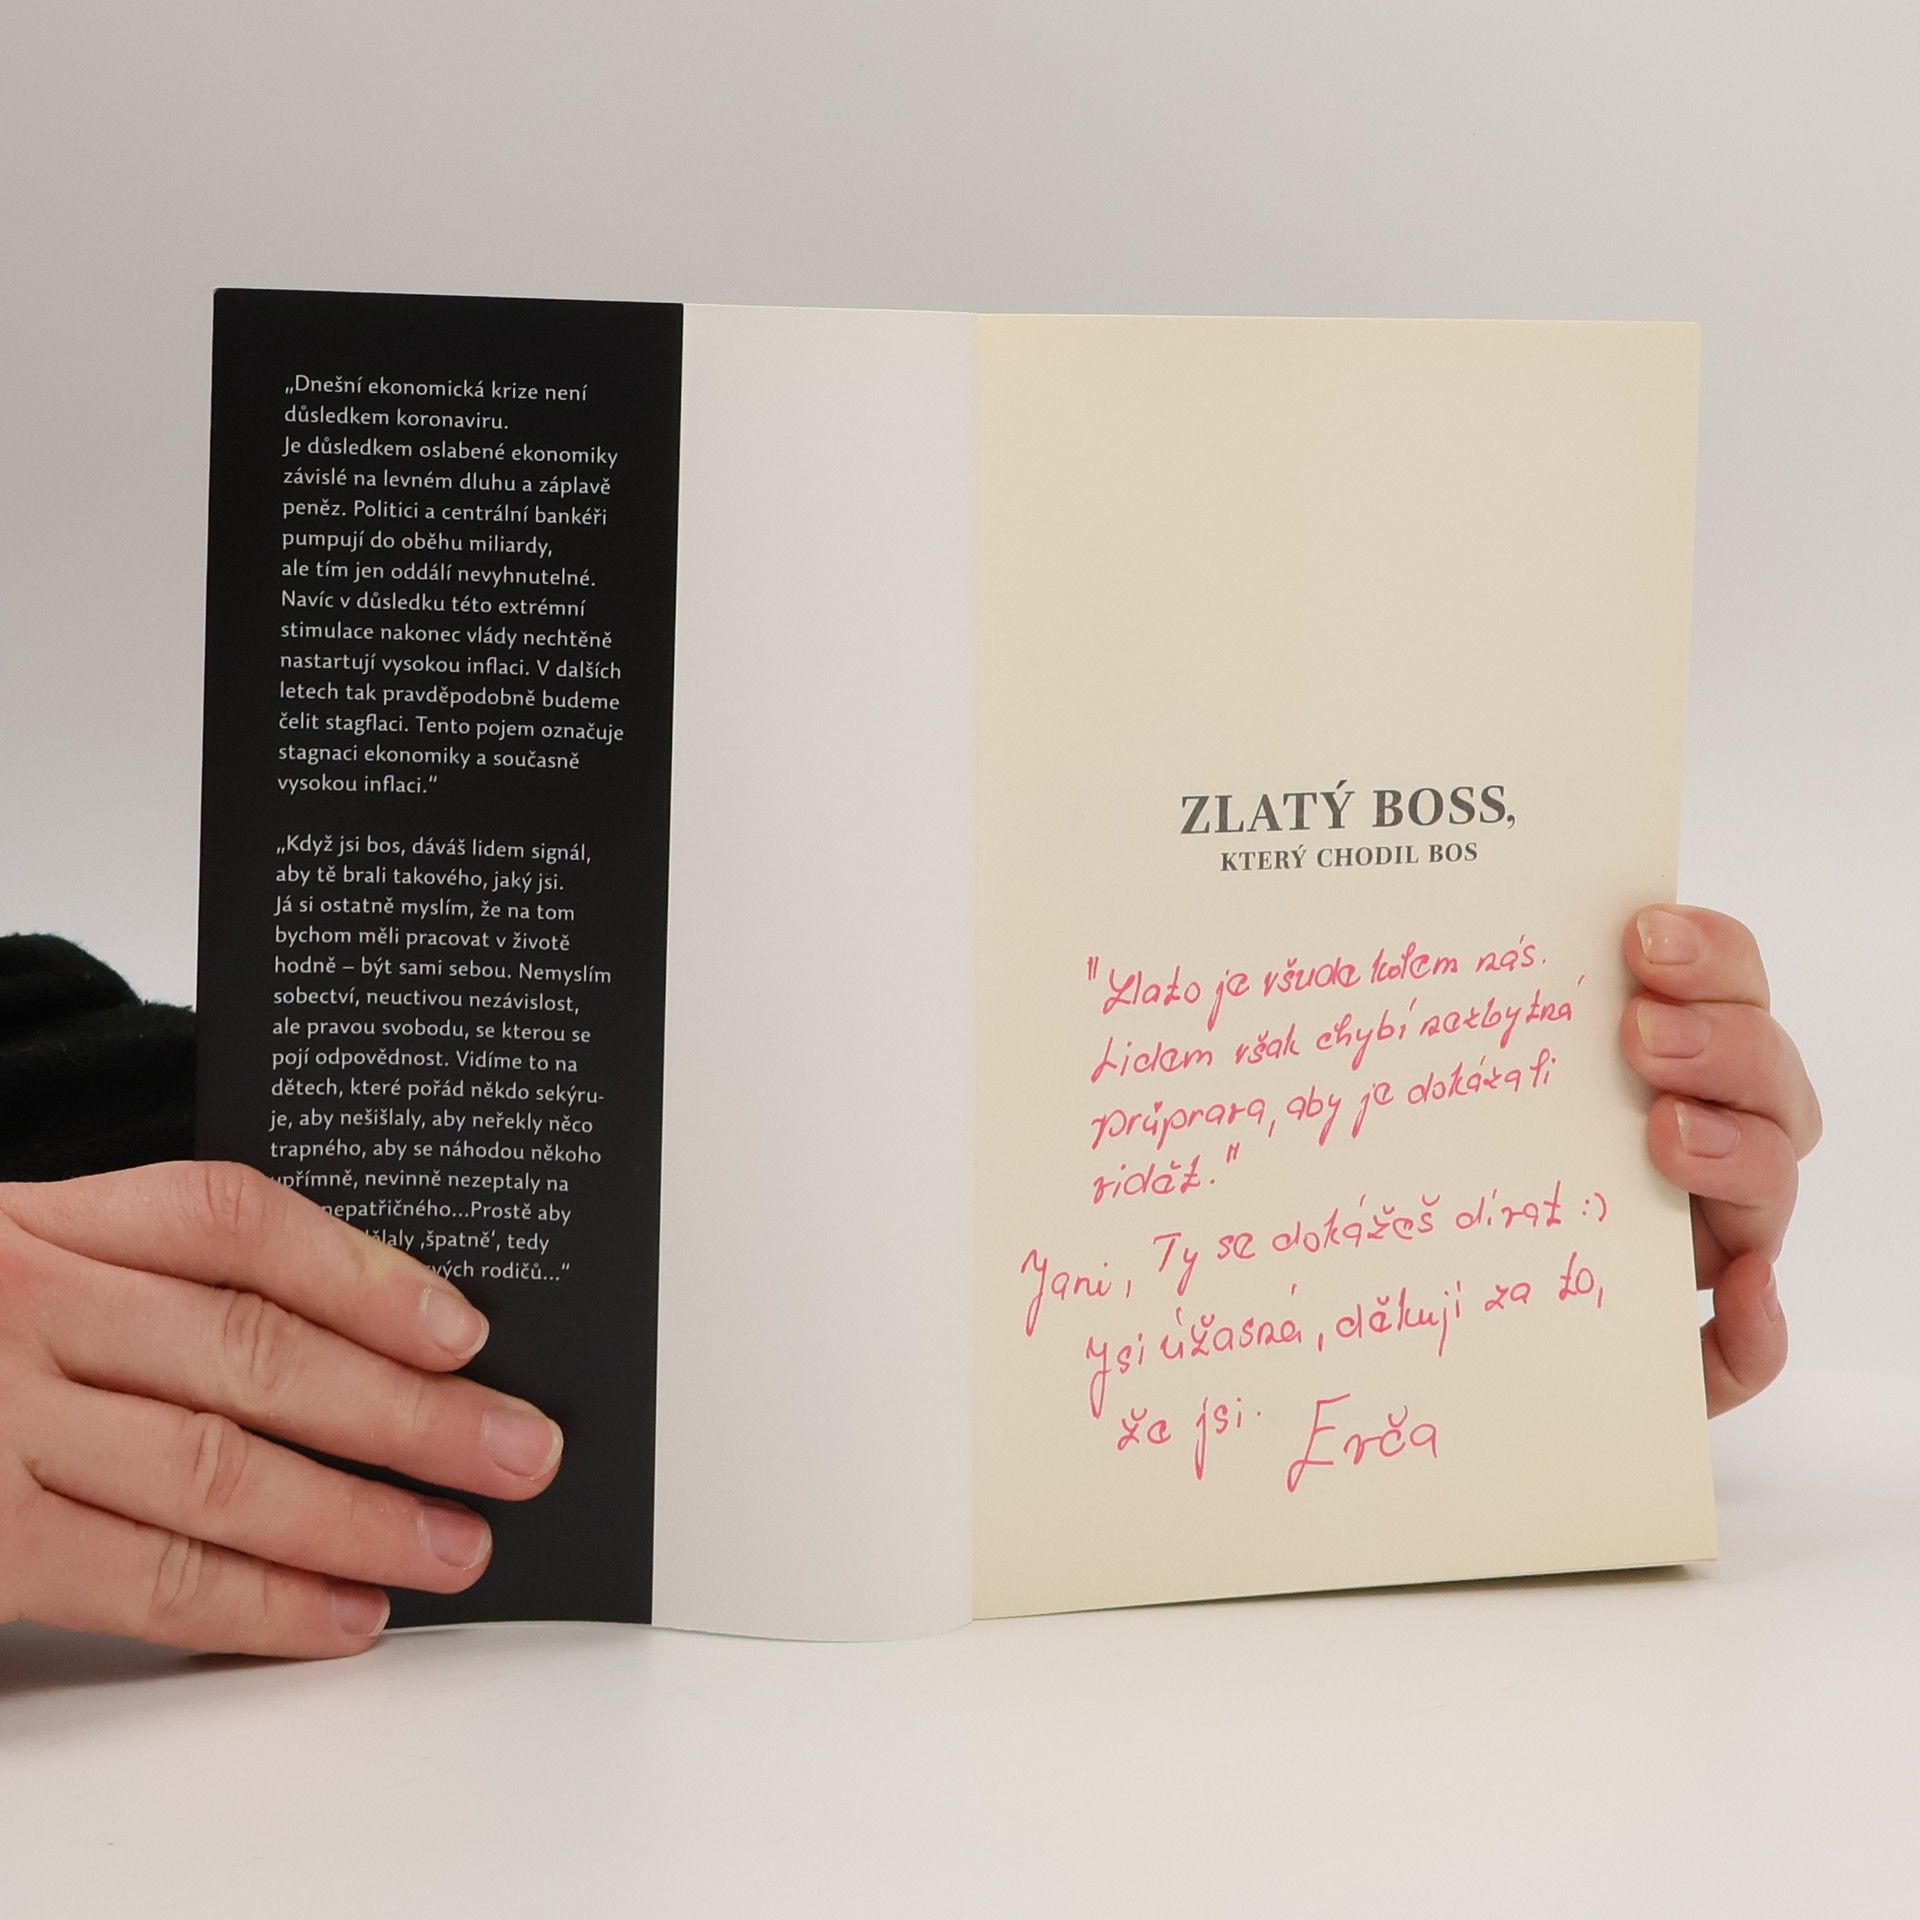 „Dnešní ekonomická krize není
důsledkem koronaviru.
Je důsledkem oslabené ekonomiky
závislé na levném dluhu a záplavě
peněz. Politici a centrální bankéři
pumpují do oběhu miliardy,
ale tím jen oddálí nevyhnutelné.
Navíc v důsledku této extrémní
stimulace nakonec vlády nechtěně
nastartují vysokou inflaci. V dalších
letech tak pravděpodobně budeme
čelit stagflaci. Tento pojem označuje
stagnaci ekonomiky a současně
vysokou inflaci.“
„Když jsi bos, dáváš lidem signál,
aby tě brali takového, jaký jsi.
Já si ostatně myslím, že na tom
bychom měli pracovat v životě
hodně – být sami sebou. Nemyslím
sobectví, neuctivou nezávislost,
ale pravou svobodu, se kterou se
pojí odpovědnost. Vidíme to na
dětech, které pořád někdo sekýru-
je, aby nešišlaly, aby neřekly něco
trapného, aby se náhodou někoho
upřímně, nevinně nezeptaly na
nepatřičného...Prostě aby
‚špatně‘, tedy
rodičů...“
ZLATÝ BOSS,
KTERÝ CHODIL BOS
"Zlato je všude kolem nás.
Lidem však chybí nezbytná
průprava, aby je dokázali
vidět."
Jani, Ty se dokážeš dívat :)
Jsi úžasná, děkuji za to,
že jsi. Evča